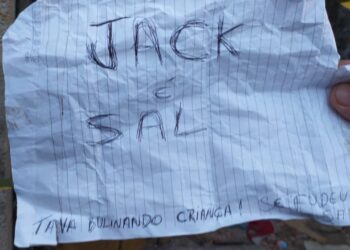 JACK
E
SAL
TAVA BULINANDO CRIANÇA! SE FUDEU